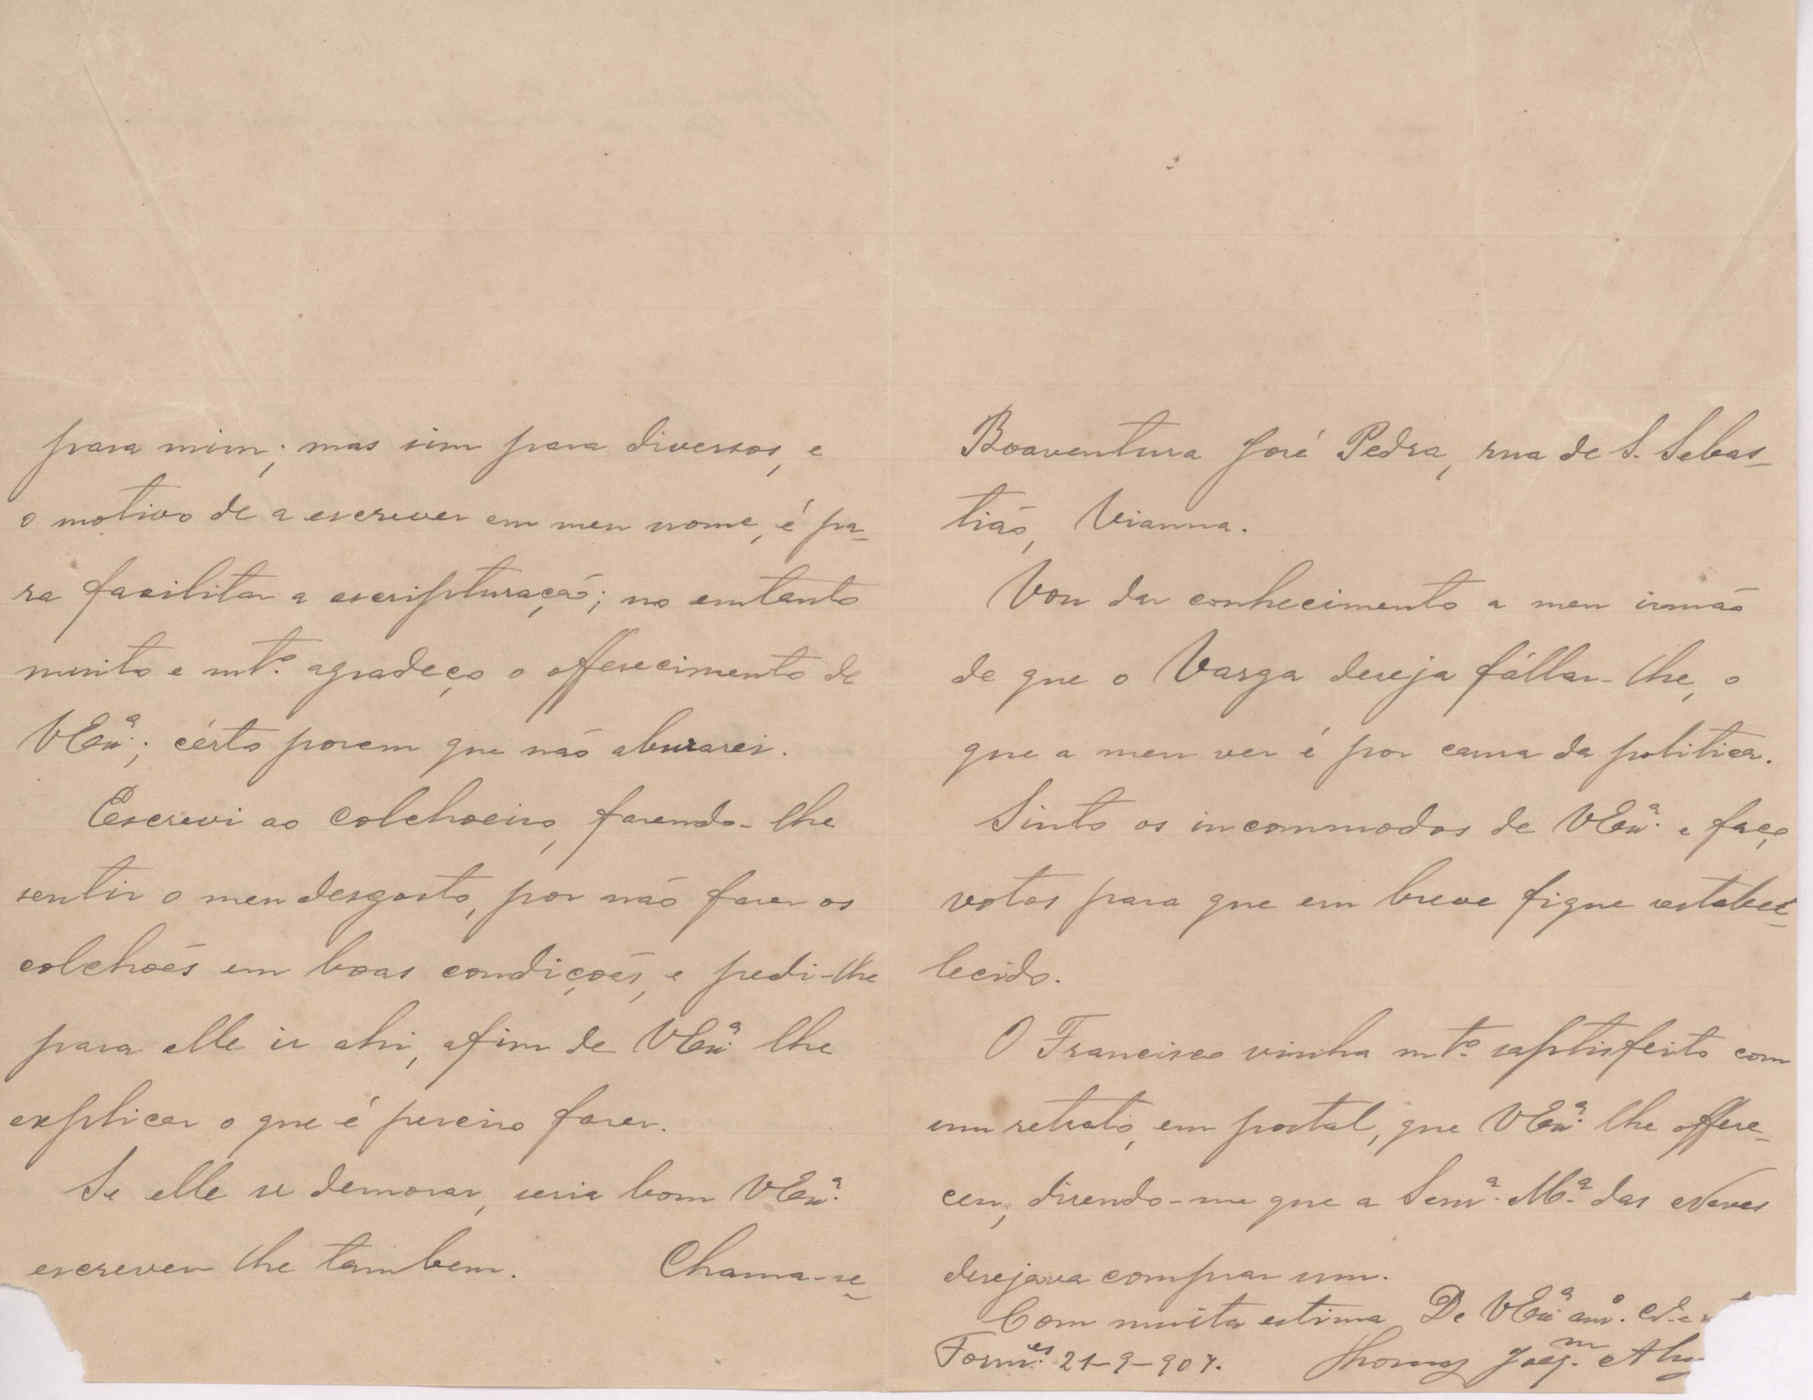 para mim; mas sim para diversos, e
o motivo de a escrever em meu nome, é pa-
ra facilitar a escripturação; no emtanto
muito e mtº. agradeço o offerecimento de
VExª.; cérto porem que não abusarei.
Escrevi ao colchoeiro, fasendo-lhe
sentir o meu desgosto, por não faser os
colchoés em boas condiçoés, e pedi-lhe
para elle ir ahi, afim de VExª. lhe
explicar o que é perciso faser.
Se elle se demorar, seria bom VExª.
escrever lhe tambem. Chama-se
Boaventura José Pedra, rua de S. Sebas-
tião, Vianna.
Vou dar conhecimento a meu irmão
de que o Varga deseja fállar-lhe, o
que a meu ver é por causa da politica.
Sinto os incommodos de VExª. e faço
votos para que em breve fique restabe-
lecido.
O Francisco vinha mtº. saptisfeito com
um retrato, em postal, que VExª. lhe offere-
ceu, disendo-me que a Senrª. Mª. das Neves
desejava comprar um.
Com muita estima De VExª. amº.
Formes. 21-9-907. Thomaz Joaqm.